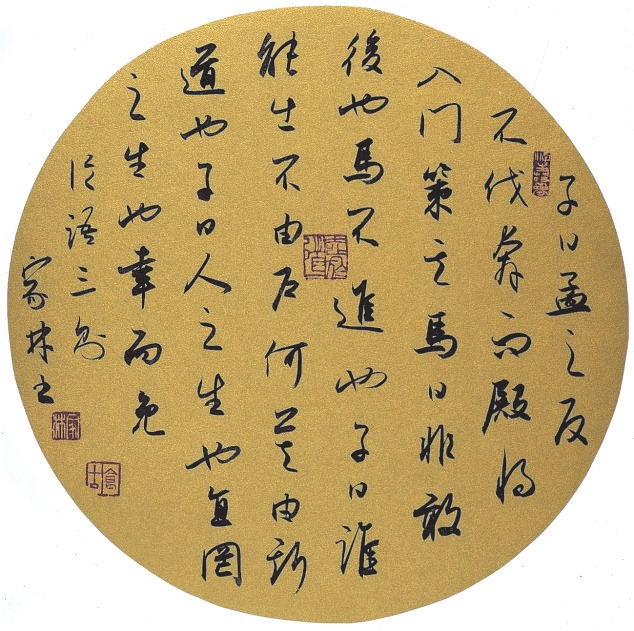 子曰孟之反
不伐奔而殿將
入門策其馬曰非敢
後也馬不進也子曰誰
能出不由户何莫由斯
道也子曰人之生也直罔
之生也幸而免
論語三則
家林書